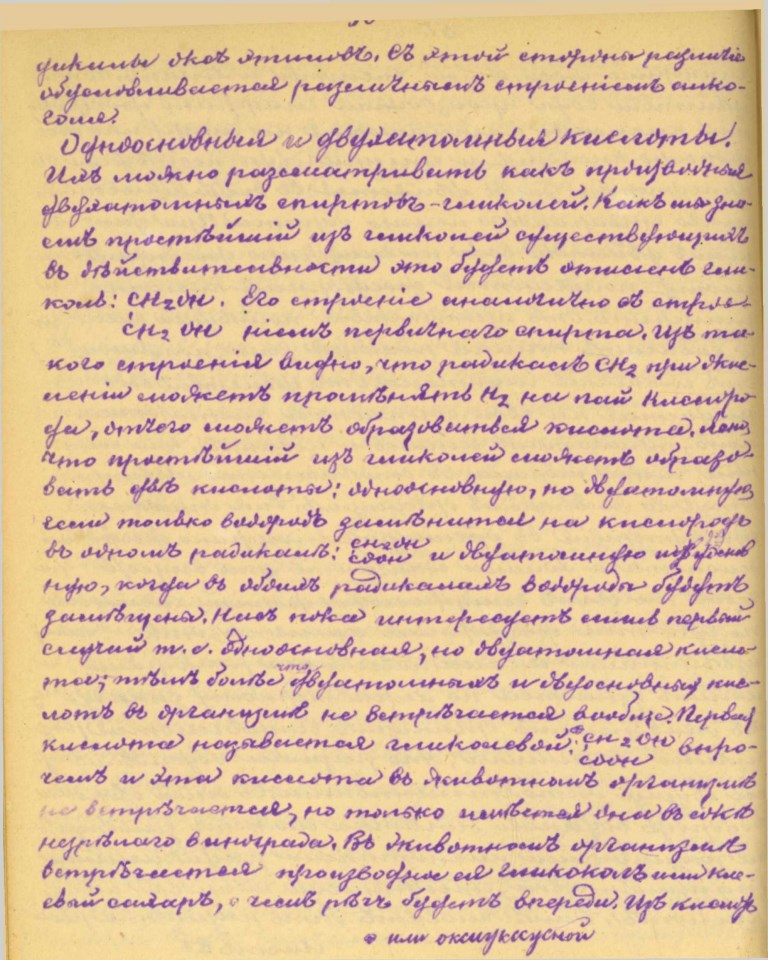 дикалы окс этиловъ. Съ этой стороны различіе
обусловливается различнымъ строеніемъ алко-
голя.
Одноосновныя и двухатомныя кислоты.
Ихъ можно разсматривать какъ производныя
двухатомныхъ спиртовъ-гликолей. Какъ мы зна-
емъ простѣйшій изъ гликолей существующихъ
въ дѣйствительности это будетъ этиленъ гли-
коль: CH2OH. Его строеніе аналогично съ строе-
CH2 OH ніемъ первичнаго спирта. Изъ та-
кого строенія видно, что радикалъ CH2 при окис-
леніи можетъ промѣнять H2 на пай кислоро-
да, отчего можетъ образоваться кислота. Ясно,
что простѣйшій изъ гликолей можетъ образо-
вать двѣ кислоты: одноосновную, но двуатомную,
если только водородъ замѣнится на кислородъ
въ одномъ радикалѣ: CH2OH и двуатомную и двуоснов
COOH
ную, когда въ обоихъ радикалахъ водороды будутъ
замѣщены. Насъ пока интересуетъ лишь первый
случай т. е. одноосновная, но двуатомная кисло-
та; тѣмъ болѣе что двуатомныхъ и двуосновныхъ кис-
лотъ въ организмѣ не встрѣчается вообще. Первая
кислота называется гликолевой: CH2OH впро-
COOH
чемъ и эта кислота въ животномъ организмѣ
не встрѣчается, но только имѣется она въ сокѣ
незрѣлаго винограда. Въ животномъ организмѣ
встрѣчается производное ея гликоколъ или кле-
евый сахаръ, о чемъ рѣчь будетъ впереди. Изъ кислотъ
или оксиуксусной